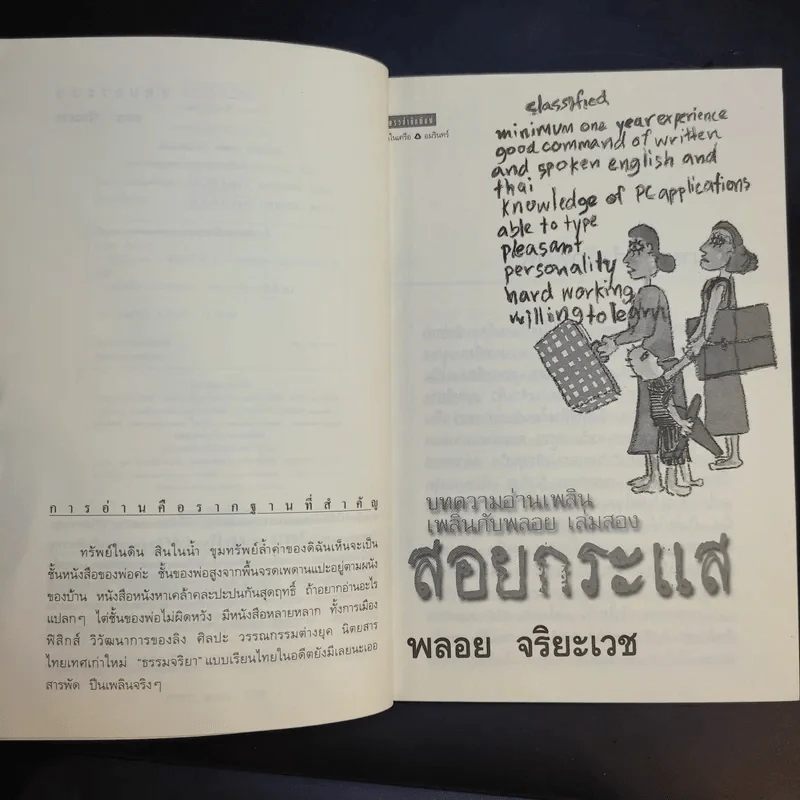 การอ่านคือรากฐานที่สำคัญ
ทรัพย์ในดิน สินในน้ำ ขุมทรัพย์ล้ำค่าของดิฉันเห็นจะเป็น
ชั้นหนังสือของพ่อค่ะ ชั้นของพ่อสูงจากพื้นจรดเพดานแปะอยู่ตามผนัง
ของบ้าน หนังสือหนังหาเคล้าคละปะปนกันสุดฤทธิ์ ถ้าอยากอ่านอะไร
แปลกๆ ไต่ชั้นของพ่อไม่ผิดหวัง มีหนังสือหลายหลาก ทั้งการเมือง
ฟิสิกส์ วิวัฒนาการของลิง ศิลปะ วรรณกรรมต่างยุค นิตยสาร
ไทยเทศเก่าใหม่ "ธรรมจริยา" แบบเรียนไทยในอดีตยังมีเลยนะเออ
สารพัด ปีนเพลินจริงๆ
อมรินทร์
classified
minimum one year experience
good command of written
and spoken english and
thai
knowledge of PC applications
able to type
pleasant
personality
hard working
willing to learn
บทความอ่านเพลิน
เพลินกับพลอย เล่มสอง
สอยกระแส
พลอย จริยะเวช